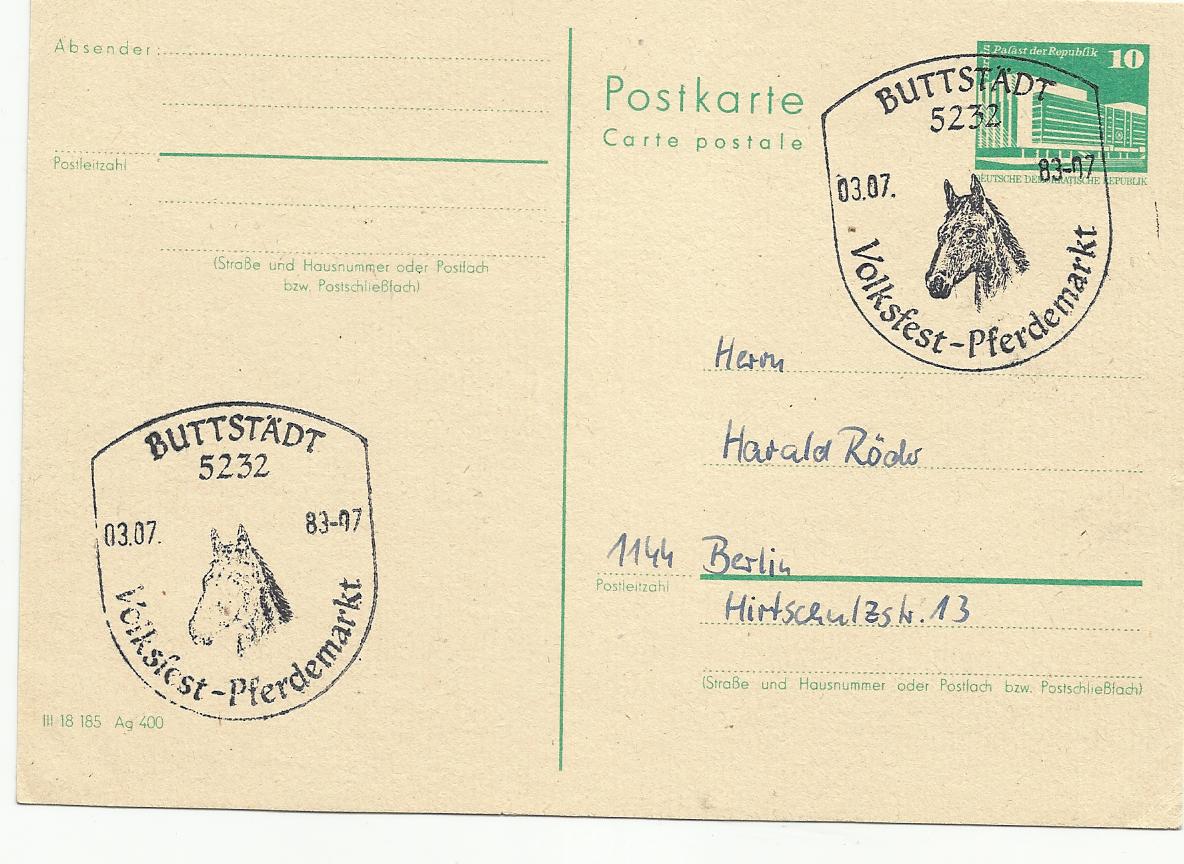 Absender:
Postleitzahl
(Straße und Hausnummer oder Postfach
bzw. Postschließfach)
BUTTSTÄDT
5232
03.07. 83-07
Volksfest-Pferdemarkt
III 18 185 Ag 400
Postkarte
Carte postale
Palast der Republik 10
DEUTSCHE DEMOKRATISCHE REPUBLIK
BUTTSTÄDT
5232
03.07. 83-07
Volksfest-Pferdemarkt
Herrn
Harald Röder
1144 Berlin
Postleitzahl
Hirtschulzstr. 13
(Straße und Hausnummer oder Postfach bzw. Postschließfach)